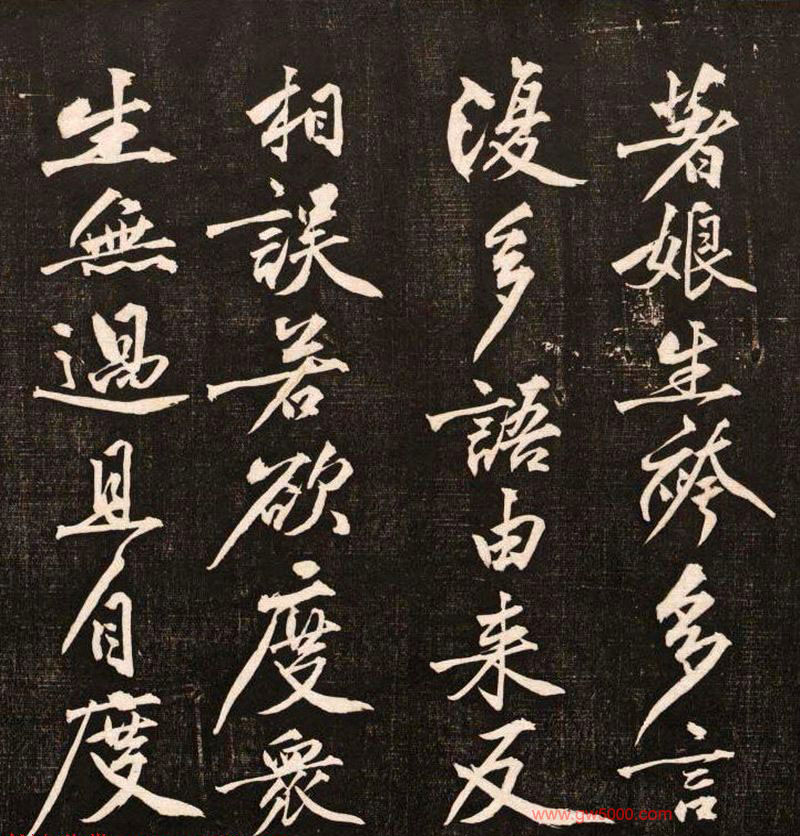 著娘生袴多言
復多語由来反
相誤若欲度衆
生無過且自度
www.gw5000.com